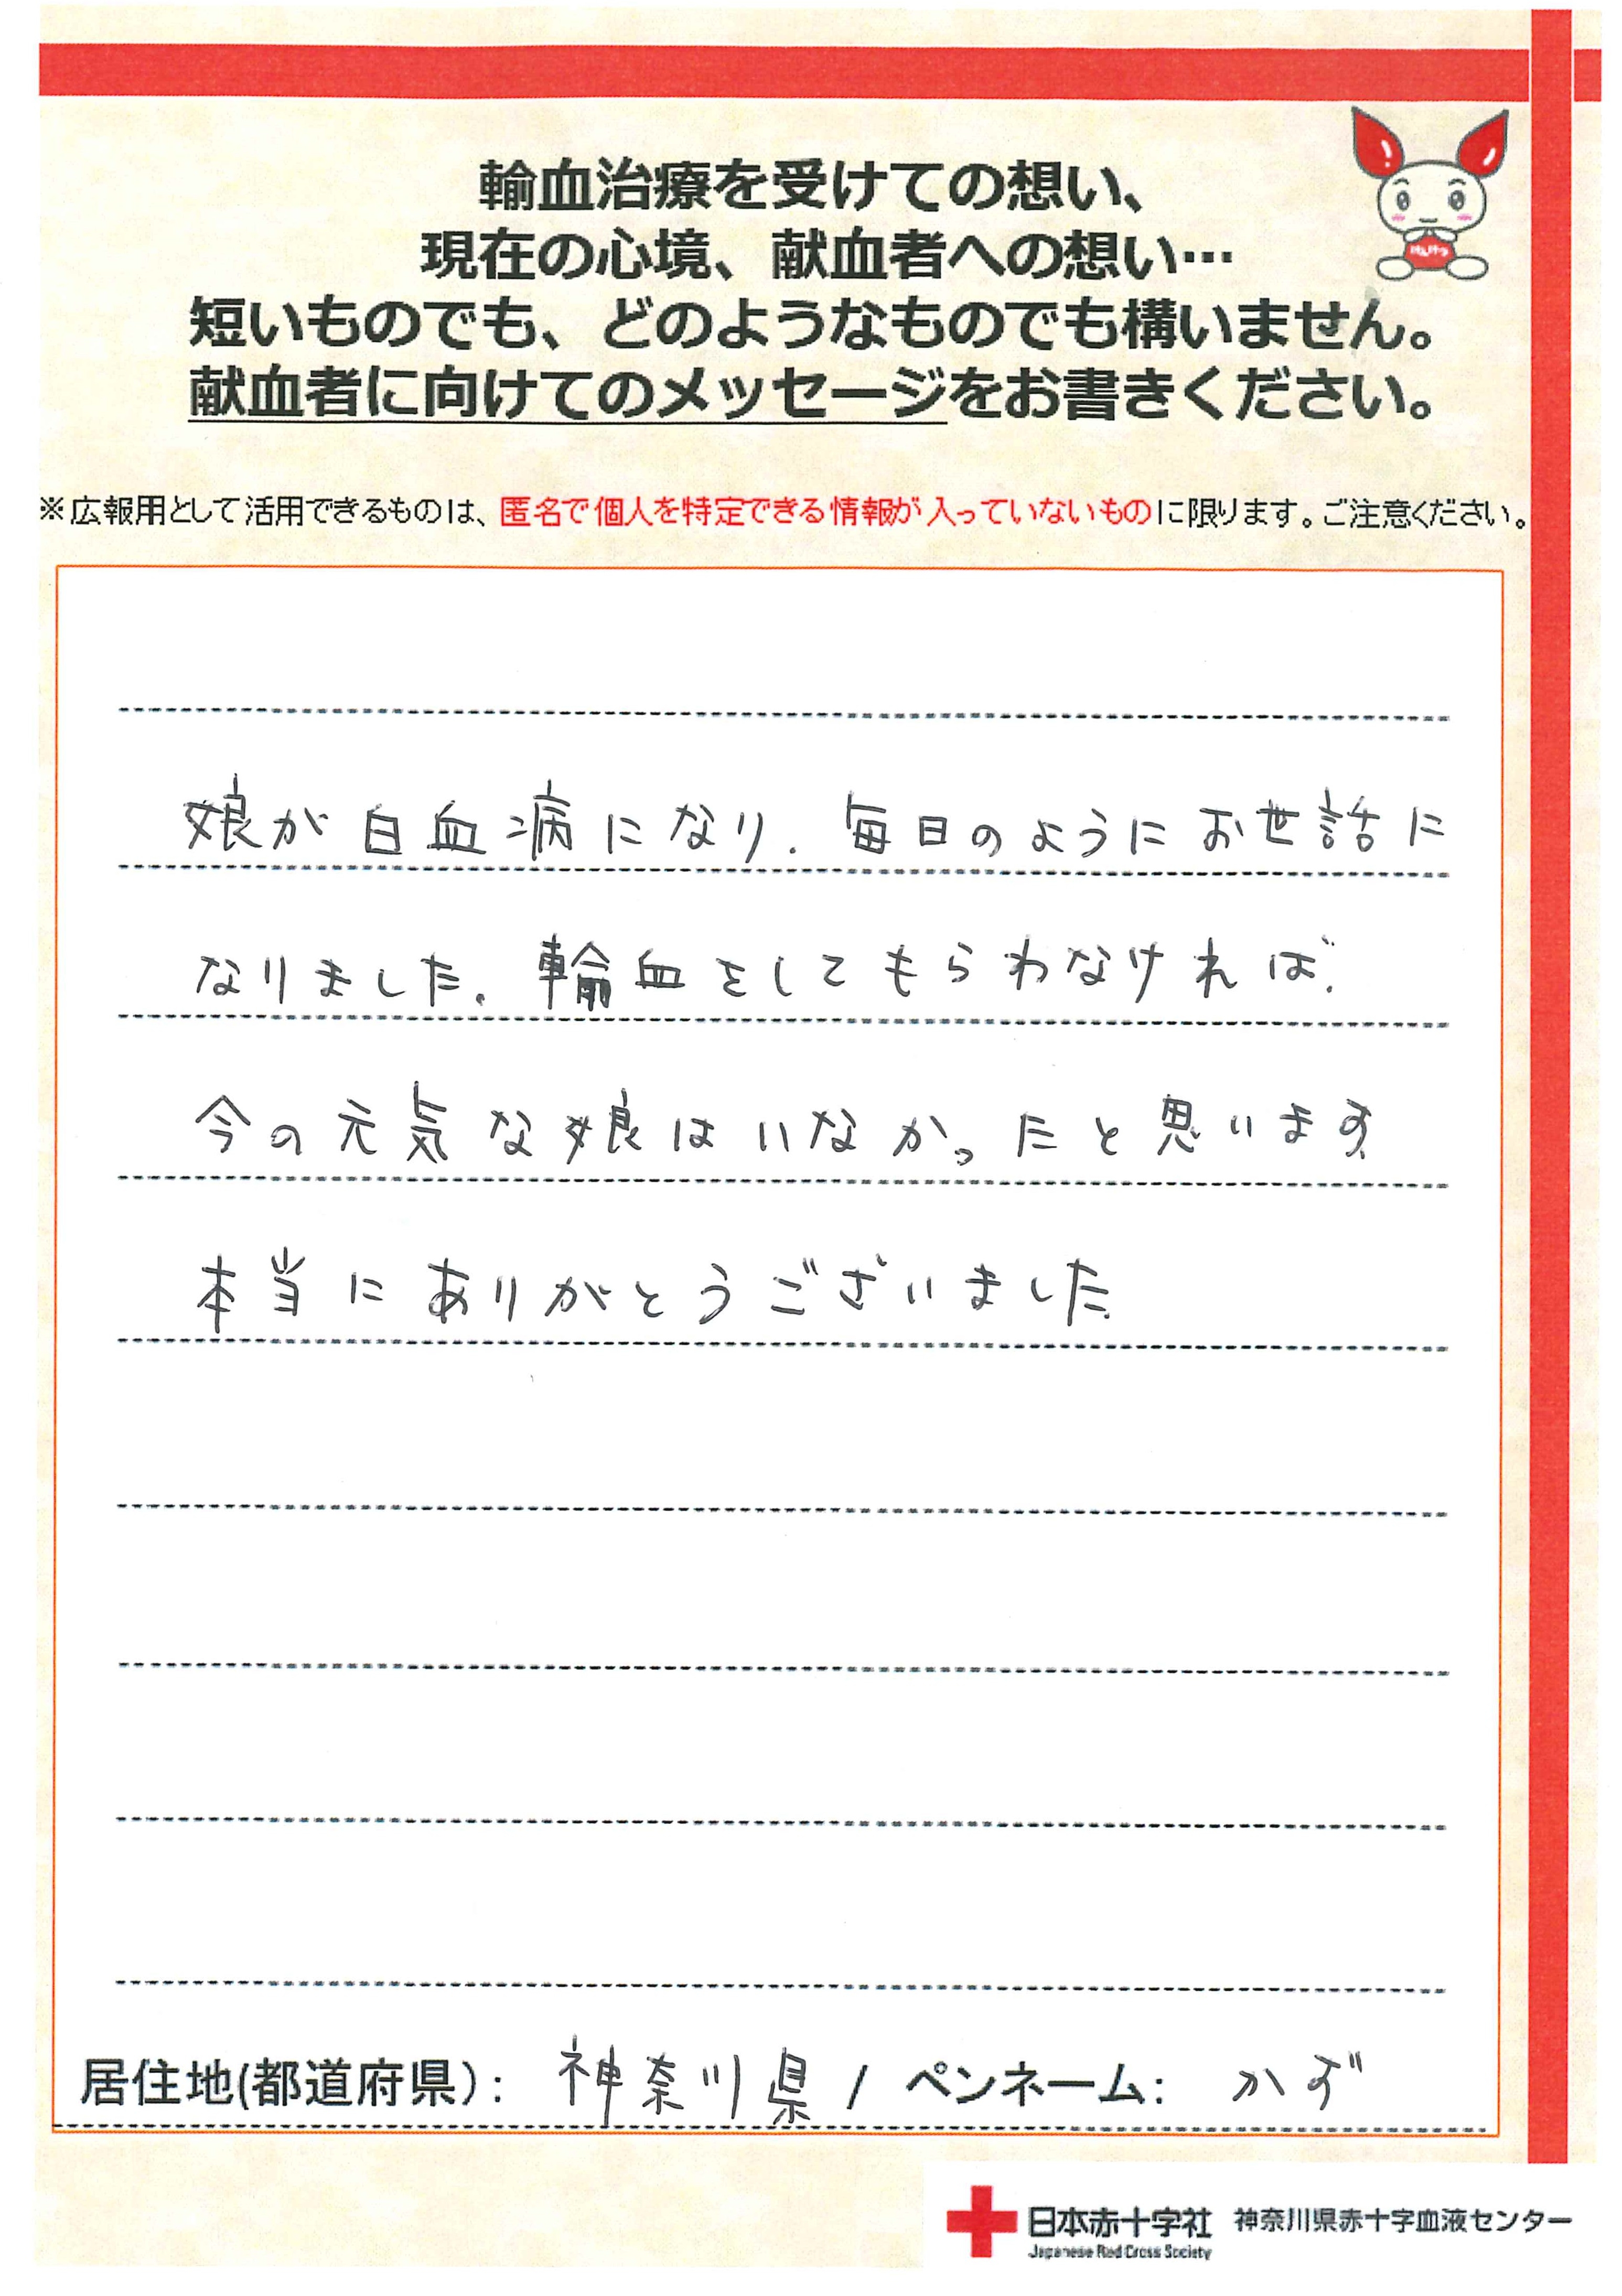 輸血治療を受けての想い、
現在の心境、献血者への想い…
短いものでも、どのようなものでも構いません。
献血者に向けてのメッセージをお書きください。
※広報用として活用できるものは、匿名で個人を特定できる情報が入っていないものに限ります。ご注意ください。
娘が白血病になり、毎日のようにお世話に
なりました。輸血をしてもらわなければ、
今の元気な娘はいなかったと思います。
本当にありがとうございました。
居住地(都道府県): 神奈川県 / ペンネーム: かず
日本赤十字社 神奈川県赤十字血液センター
Japanese Red Cross Society